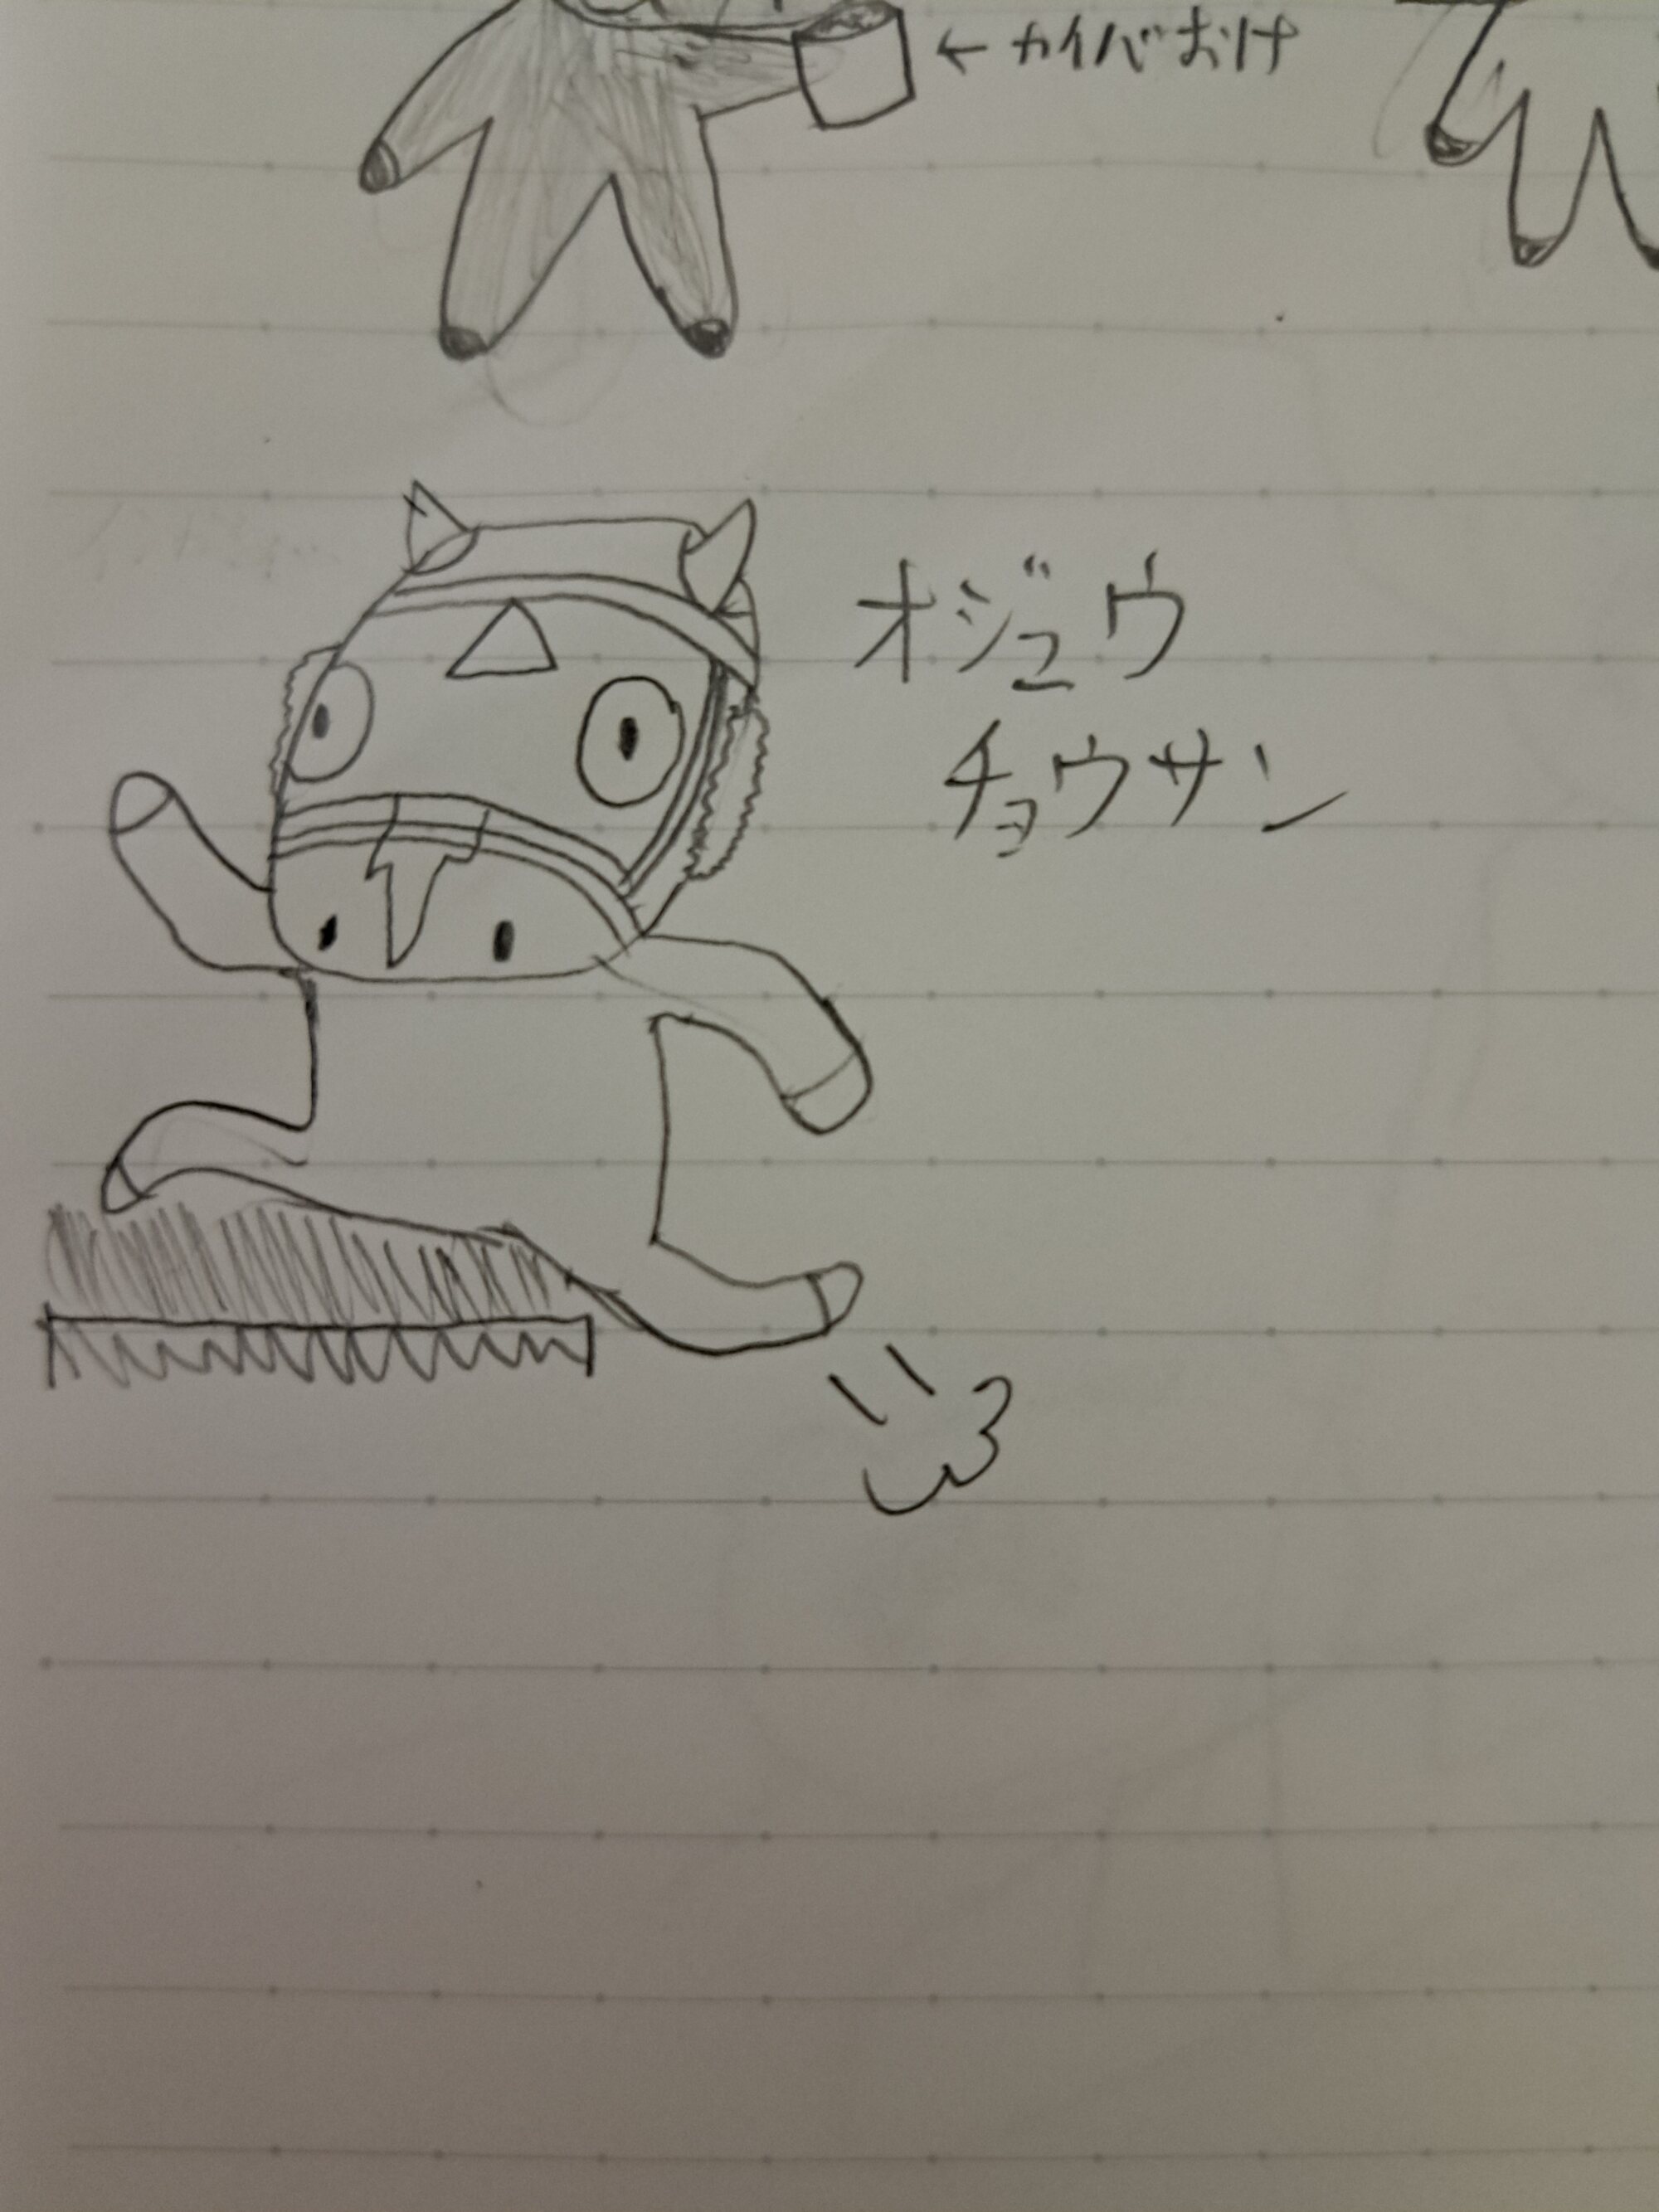 ← カイバおけ
オジュウ
チョウサン